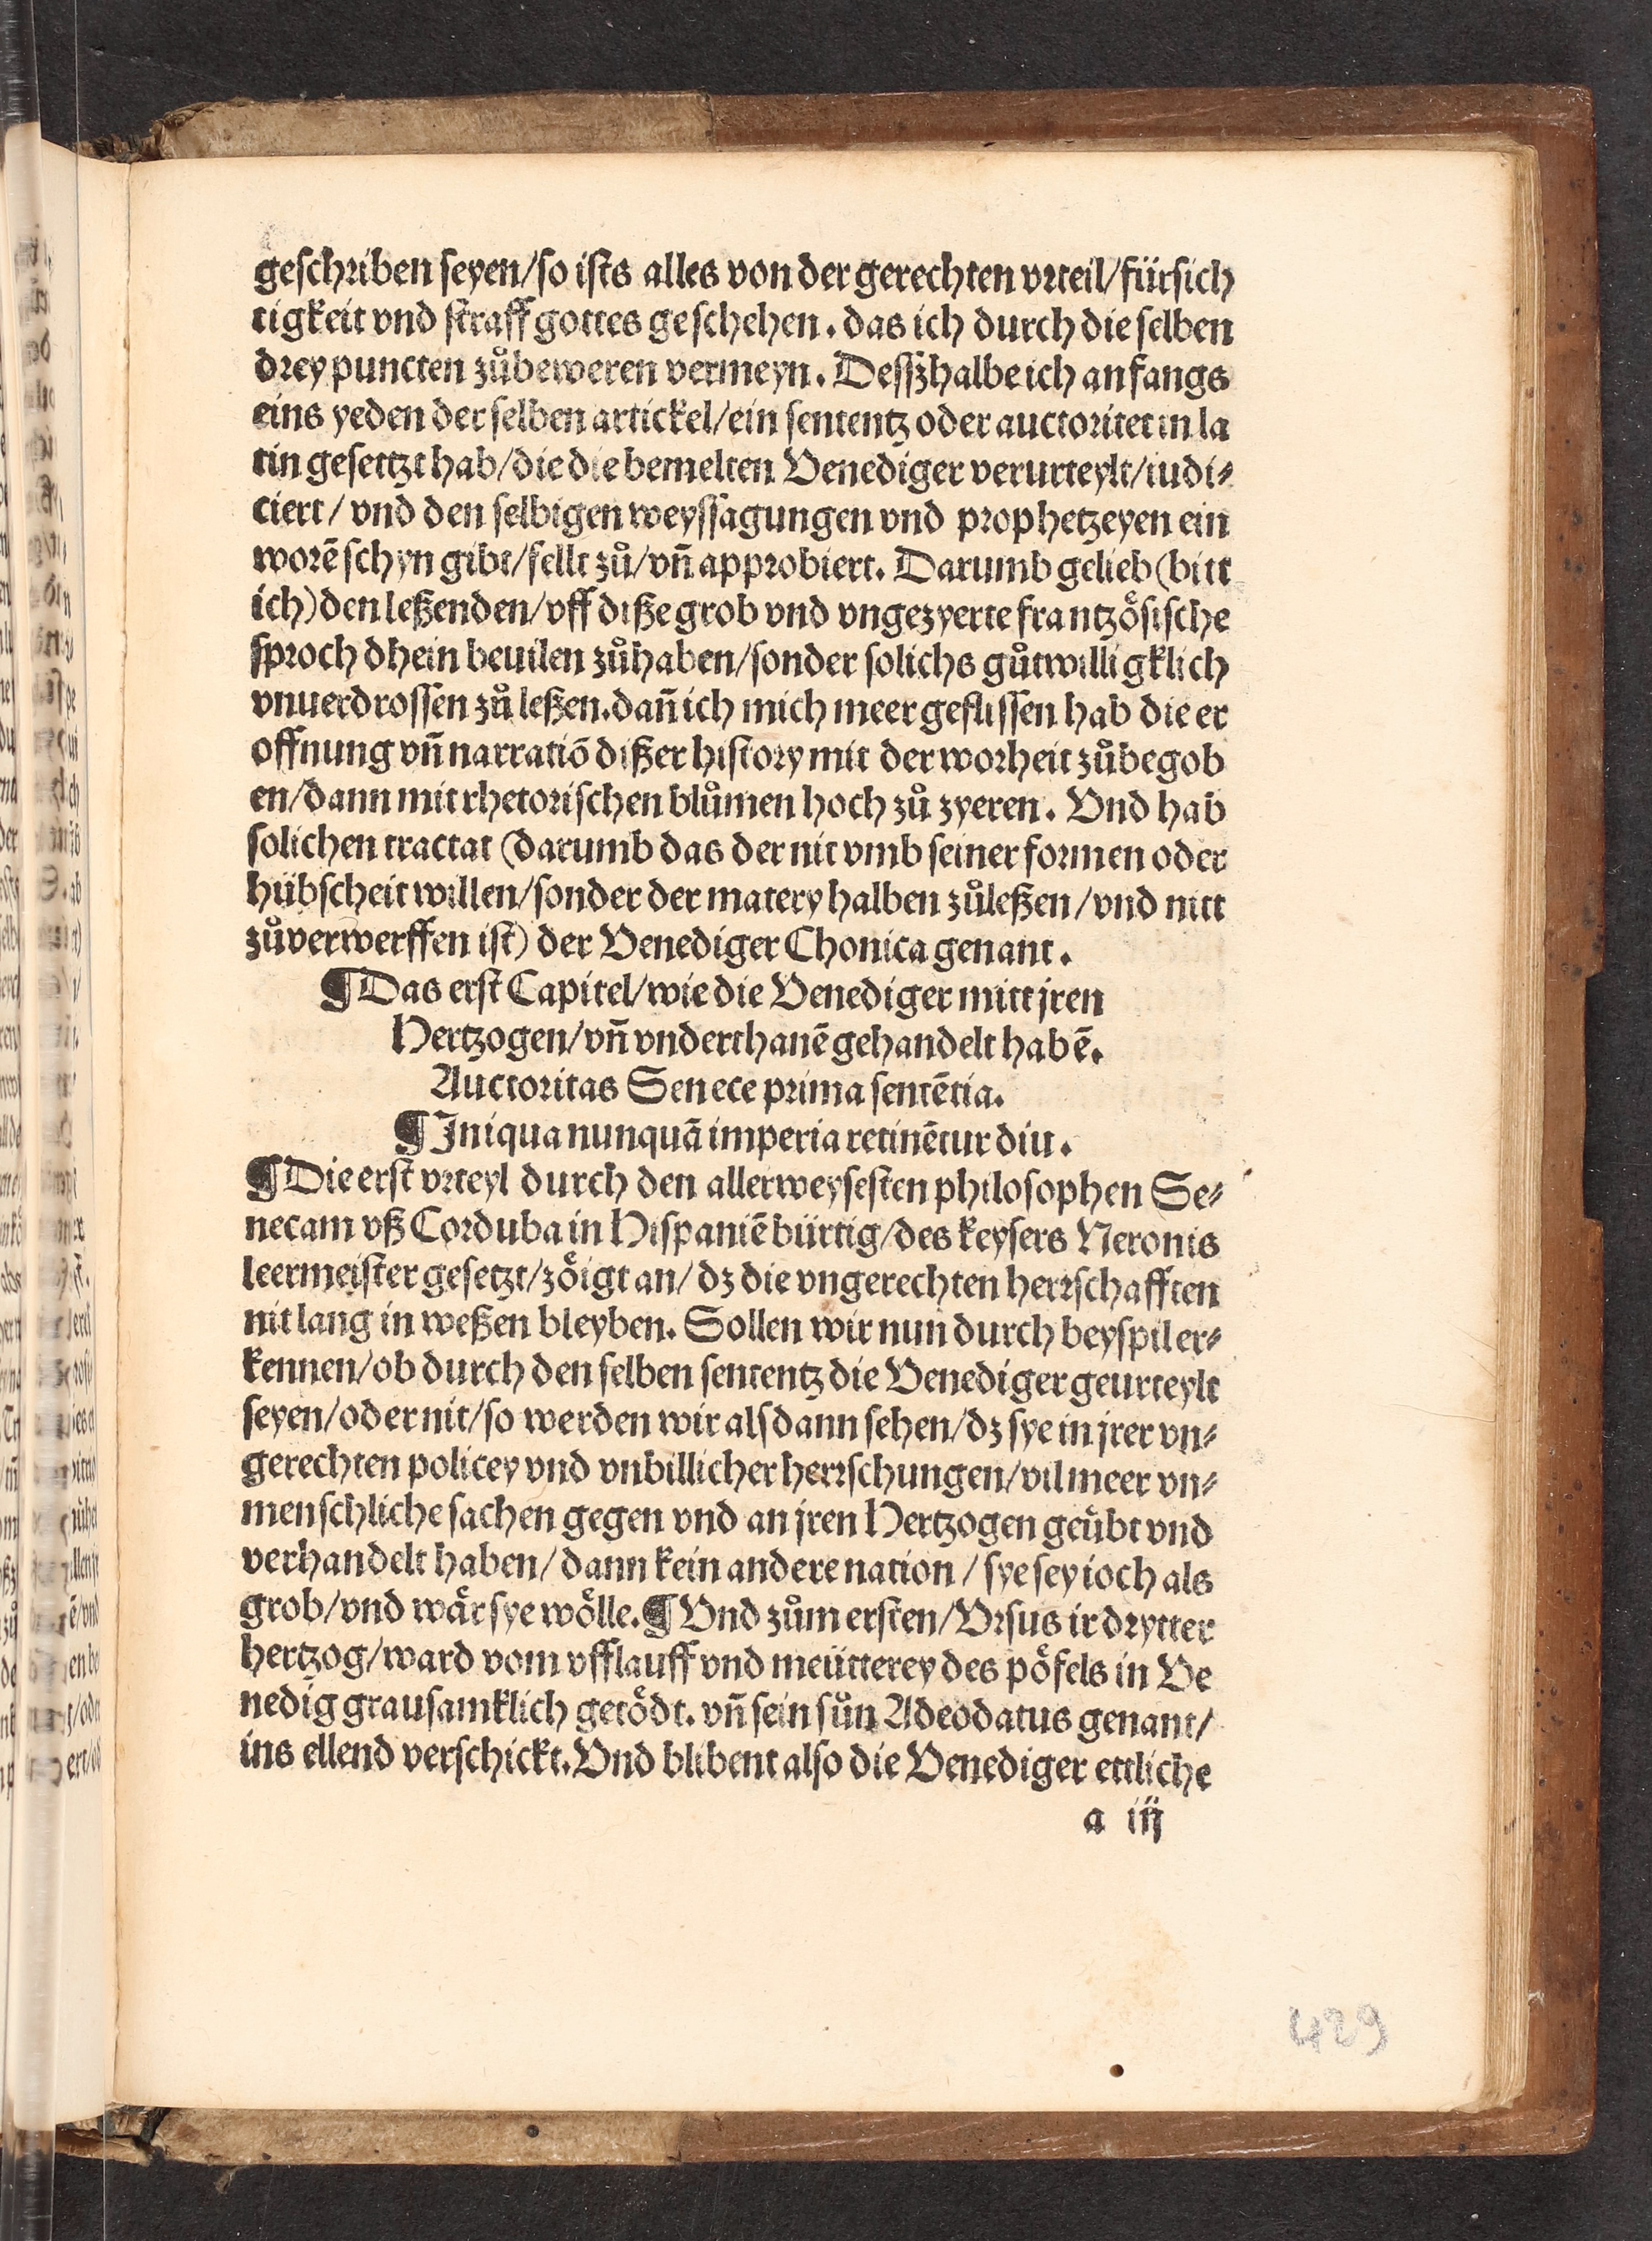 geschriben seyen/so ists alles von der gerechten vrteil/fürsich
tigkeit vnd straff gottes geschehen. das ich durch die selben
drey puncten zůbeweren vermeyn. Desszhalbe ich anfangs
eins yeden der selben artickel/ein sententz oder auctoritet in la
tin gesettzt hab/die die bemelten Venediger verurteylt/iudi⸗
ciert/ vnd den selbigen weyssagungen vnd prophetzeyen ein
worē schyn gibt/fellt zů/vñ approbiert. Darumb gelieb (bitt
ich) den leßenden/vff diße grob vnd vngezyerte frantzösische
sproch dhein beuilen zůhaben/sonder solichs gůtwilligklich
vnuerdrossen zů leßen.dañ ich mich meer geflissen hab die er
offnung vñ narratiō dißer history mit der worheit zůbegob
en/dann mit rhetorischen blůmen hoch zů zyeren. Vnd hab
solichen tractat (darumb das der nit vmb seiner formen oder
hübscheit willen/sonder der matery halben zůleßen/vnd nitt
zůverwerffen ist) der Venediger Chonica genant.
¶Das erst Capitel/wie die Venediger mitt jren
Hertzogen/vñ vnderthanē gehandelt habē.
Auctoritas Senece prima sentētia.
¶Iniqua nunquā imperia retinētur diu.
¶Die erst vrteyl durch den allerweysesten philosophen Se⸗
necam vß Corduba in Hispaniē bürtig/des keysers Neronis
leermeister gesetzt/zöigt an/ dz die vngerechten herrschafften
nit lang in weßen bleyben. Sollen wir nun durch beyspil er⸗
kennen/ob durch den selben sententz die Venediger geurteylt
seyen/oder nit/so werden wir alsdann sehen/dz sye in jrer vn⸗
gerechten policey vnd vnbillicher herrschungen/vil meer vn⸗
menschliche sachen gegen vnd an jren Hertzogen geübt vnd
verhandelt haben/ dann kein andere nation / sye sey ioch als
grob/vnd wär sye wölle.¶Vnd zům ersten/Vrsus ir drytter
hertzog/ward vom vfflauff vnd meütterey des pöfels in Ve
nedig grausamklich getödt. vñ sein sůn Adeodatus genant/
ins ellend verschickt.Vnd blibent also die Venediger ettliche
a iij
429